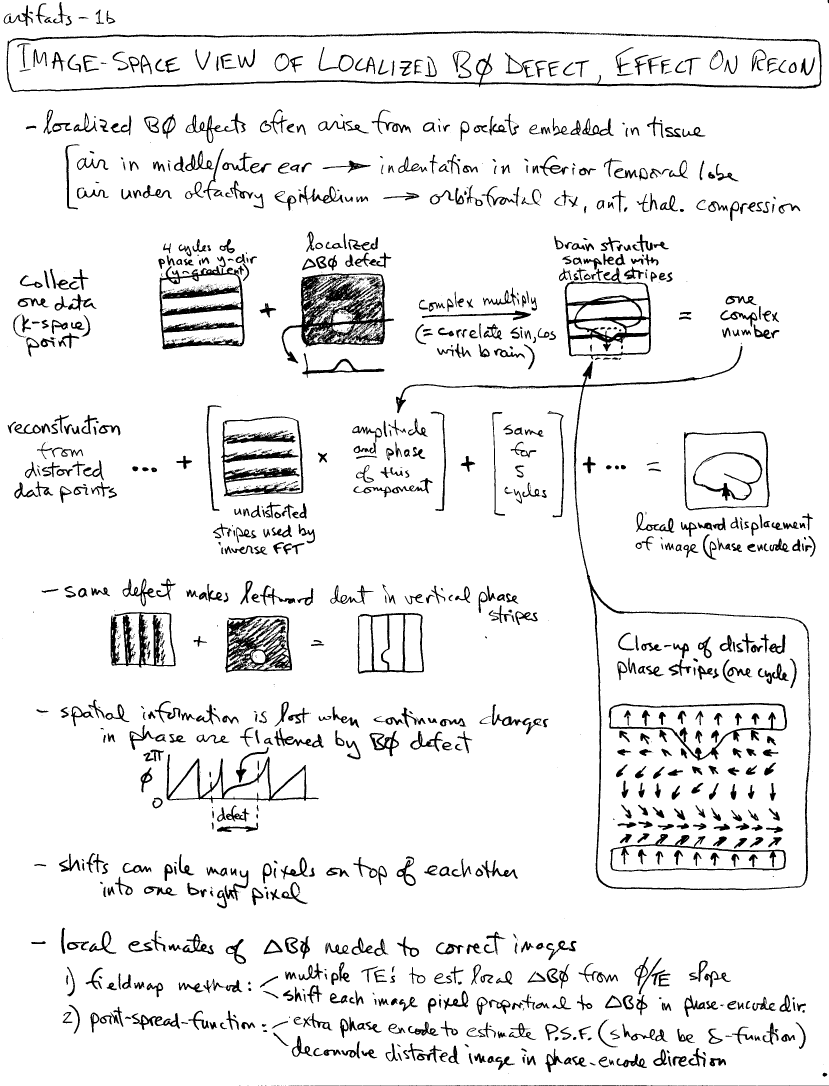 artifacts - 1b
IMAGE-SPACE VIEW OF LOCALIZED BØ DEFECT, EFFECT ON RECON
- localized BØ defects often arise from air pockets embedded in tissue
air in middle/outer ear → indentation in inferior temporal lobe
air under olfactory epithelium → orbitofrontal ctx, ant. thal. compression
collect
one data
(k-space)
point
4 cycles of
phase in y-dir
(y-gradient)
+
localized
ΔBØ defect
complex multiply
(= correlate sin, cos
with brain)
brain structure
sampled with
distorted stripes
=
one
complex
number
reconstruction
from
distorted
data points
... +
undistorted
stripes used by
inverse FFT
×
amplitude
and phase
of this
component
+
same
for
5
cycles
+ ... =
local upward displacement
of image (phase encode dir)
- same defect makes leftward dent in vertical phase
stripes
+
=
Close-up of distorted
phase stripes (one cycle)
- spatial information is lost when continuous changes
in phase are flattened by BØ defect
2π
ϕ
0
defect
- shifts can pile many pixels on top of each other
into one bright pixel
- local estimates of ΔBØ needed to correct images
1) fieldmap method: multiple TE's to est. local ΔBØ from ϕ/TE slope
shift each image pixel proportional to ΔBØ in phase-encode dir.
2) point-spread-function: extra phase encode to estimate P.S.F. (should be δ-function)
deconvolve distorted image in phase-encode direction